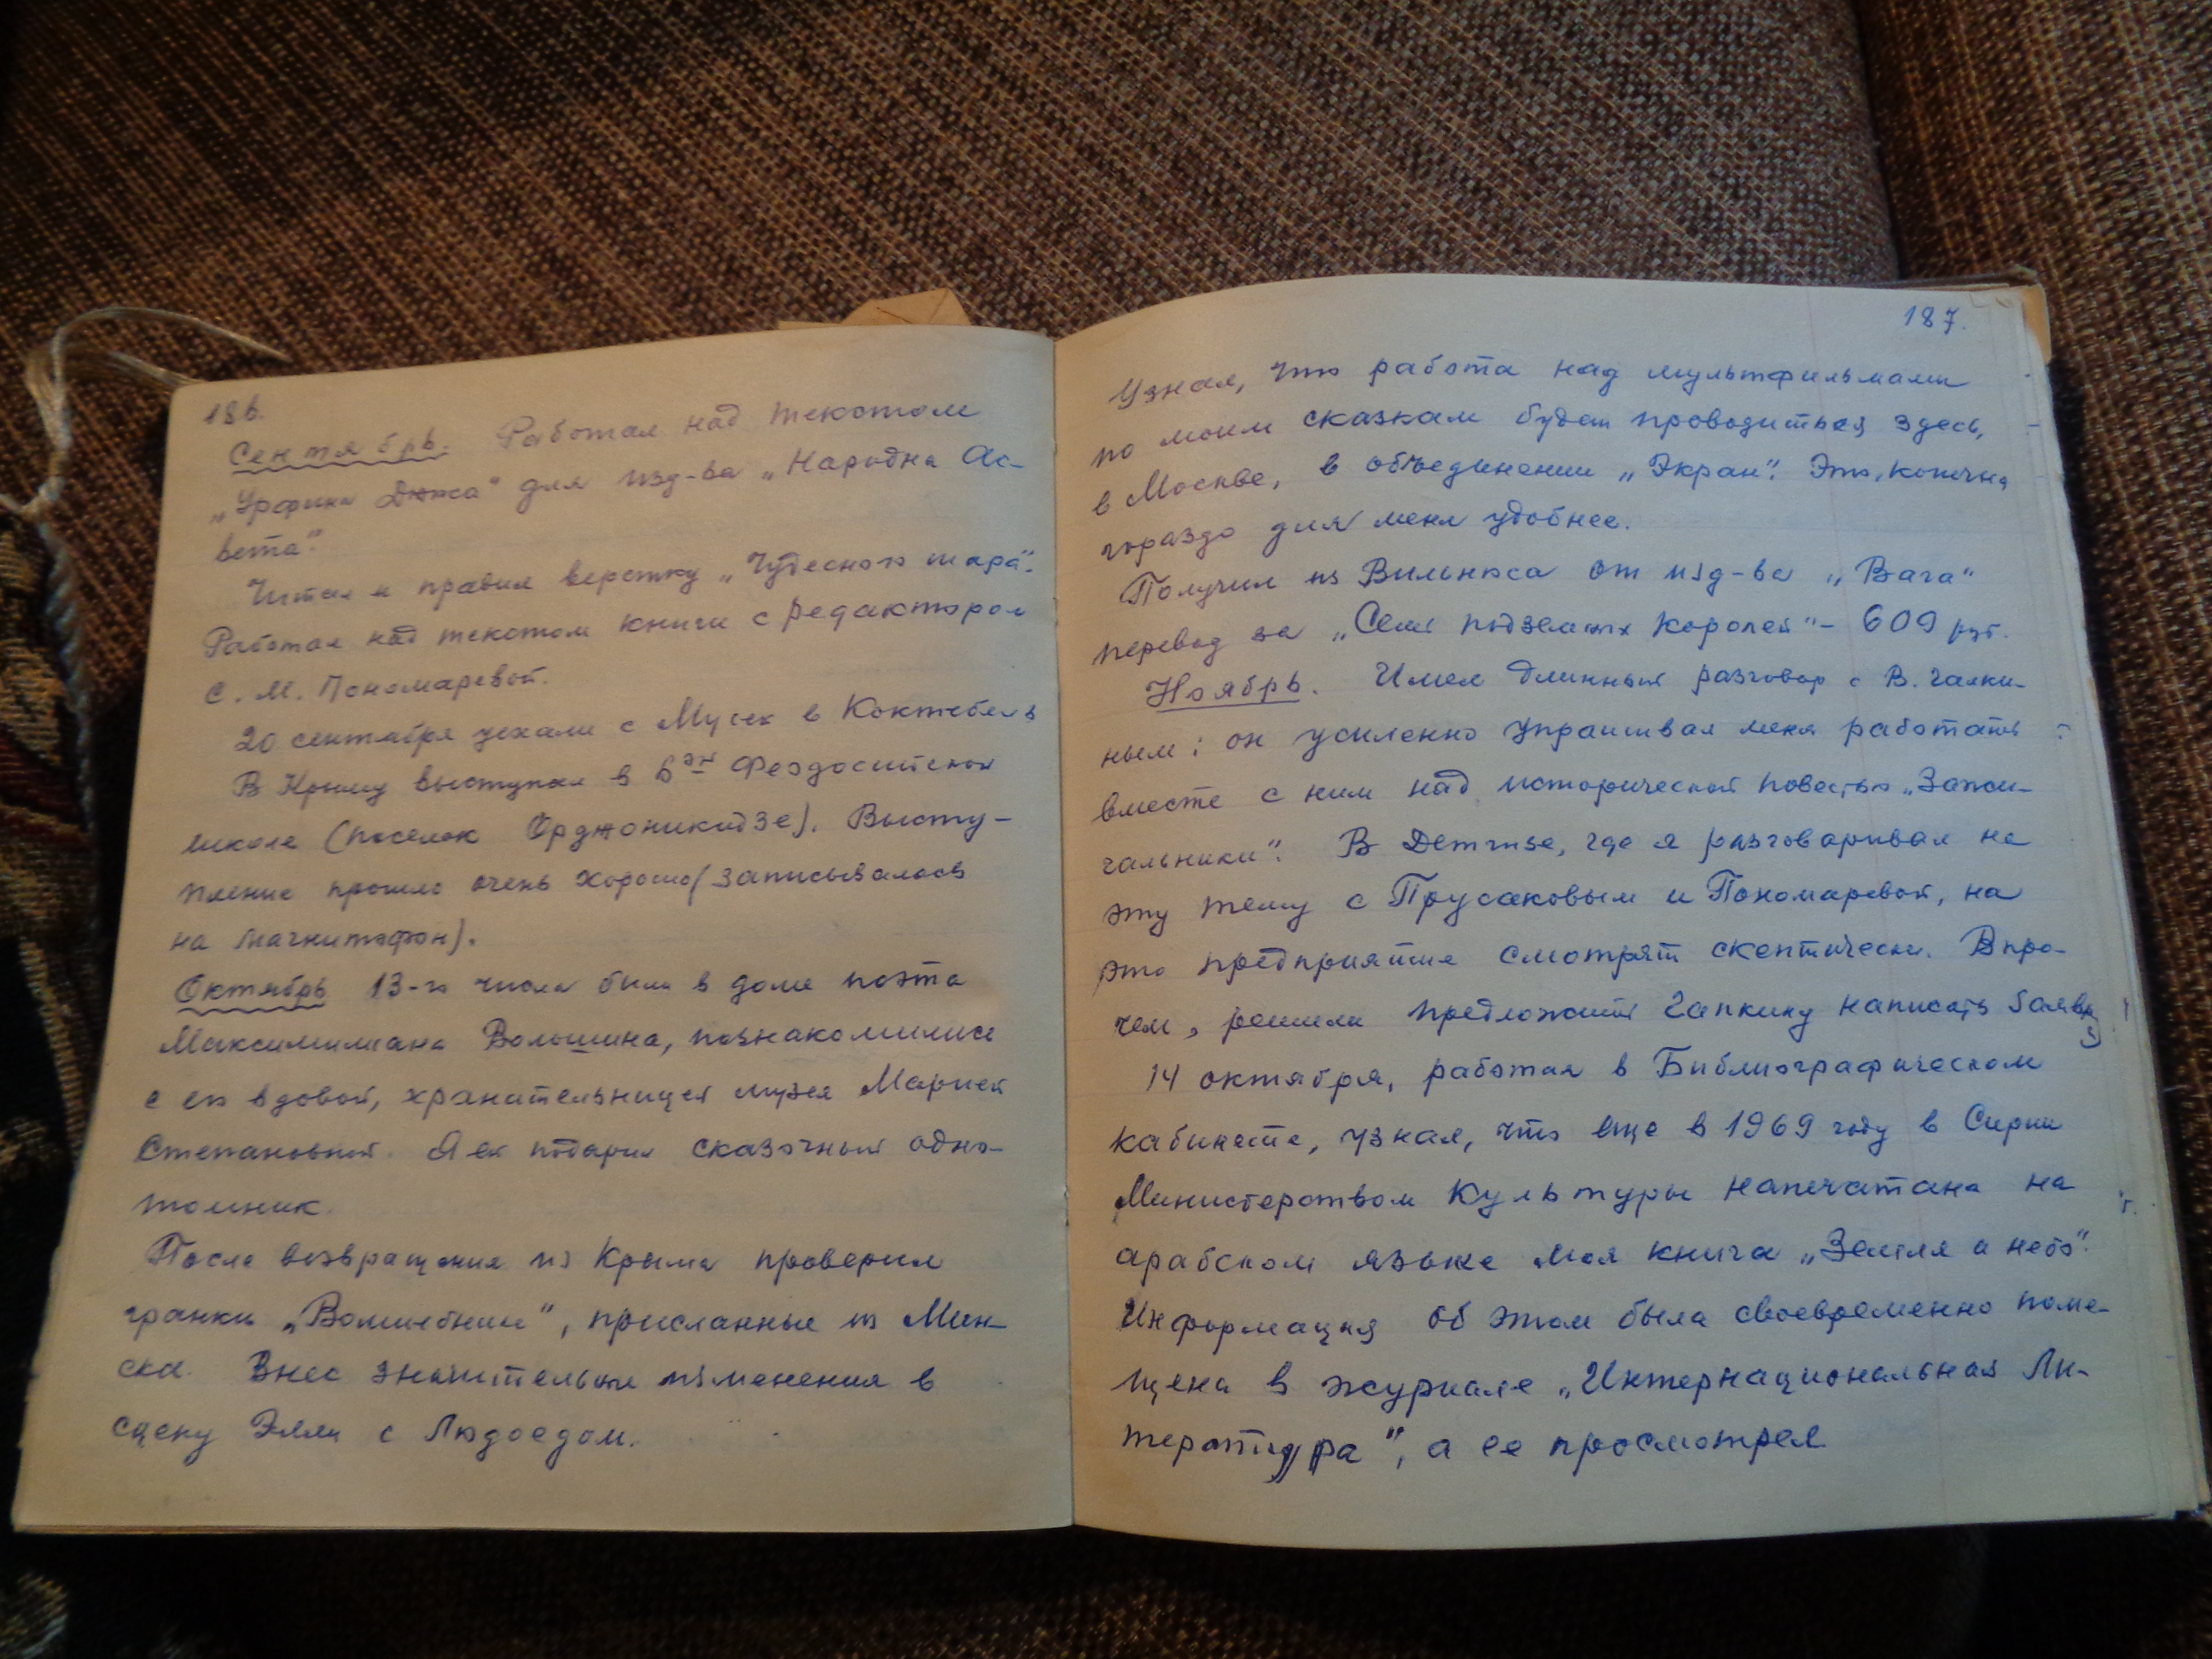 186.
Сентябрь. Работал над текстом
„Урфина Джюса“ для изд-ва „Народна Ас-
вета“.
Читал и правил верстку „Чудесного шара“.
Работал над текстом книги с редактором
С. М. Пономаревой.
20 сентября уехали с Мусей в Коктебель
В Крыму выступал в 6ой Феодосийской
школе (поселок Орджоникидзе). Высту-
пление прошло очень хорошо (записывалось
на магнитофон).
Октябрь 13-го числа были в доме поэта
Максимилиана Волошина, познакомились
с его вдовой, хранительницей музея Марией
Степановной. Я ей подарил сказочный одно-
томник.
После возвращения из Крыма проверил
гранки „Волшебника“, присланные из Мин-
ска. Внес значительные изменения в
сцену Элли с Людоедом.
187.
Узнал, что работа над мультфильмами
по моим сказкам будет проводиться здесь,
в Москве, в объединении „Экран“. Это, конечно,
гораздо для меня удобнее.
Получил из Вильнюса от изд-ва „Вага“
перевод за „Семь подземных королей“ – 609 руб.
Ноябрь. Имел длинный разговор с В. Галки-
ным: он усиленно упрашивал меня работать
вместе с ним над исторической повестью
В Детгизе, где я разговаривал на
эту тему с Прусаковым и Пономаревой, на
это предприятие смотрят скептически. Впро-
чем, решили предложить Галкину написать заявку
14 октября, работая в Библиографическом
кабинете, узнал, что еще в 1969 году в Сирии
Министерством Культуры напечатана на
арабском языке моя книга „Земля и небо“.
Информация об этом была своевременно поме-
щена в журнале „Интернациональная Ли-
тература“, а я ее просмотрел